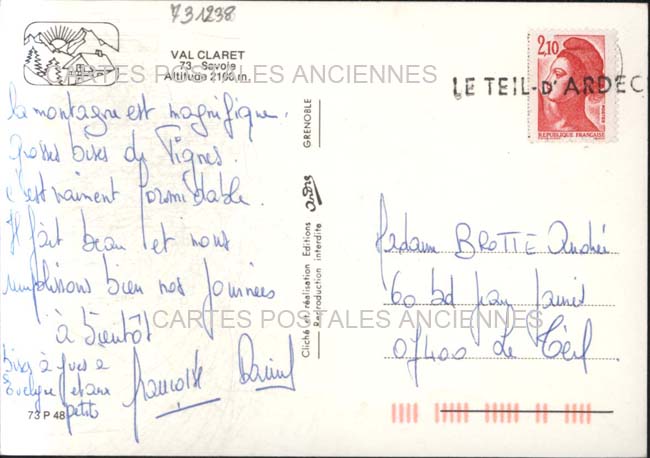 731238
VAL CLARET
73 - Savoie
Altitude 2100 m.
CARTES POSTALES ANCIENNES
la montagne est magnifique.
Grosses bises de Tignes.
c'est vraiment formidable.
Il fait beau et nous
remplissons bien nos journées
à bientôt
bises à Yves à
Evelyne et aux
petits
Françoise Daniel
73 P 48
GRENOBLE
André
Cliché et réalisation Editions
Reproduction interdite
2,10
POSTES
REPUBLIQUE FRANÇAISE
LE TEIL-D'ARDEC
Madame BROTTE Andrée
60 bd Jean Jaures
07400 Le Teil
CARTES POSTALES ANCIENNES